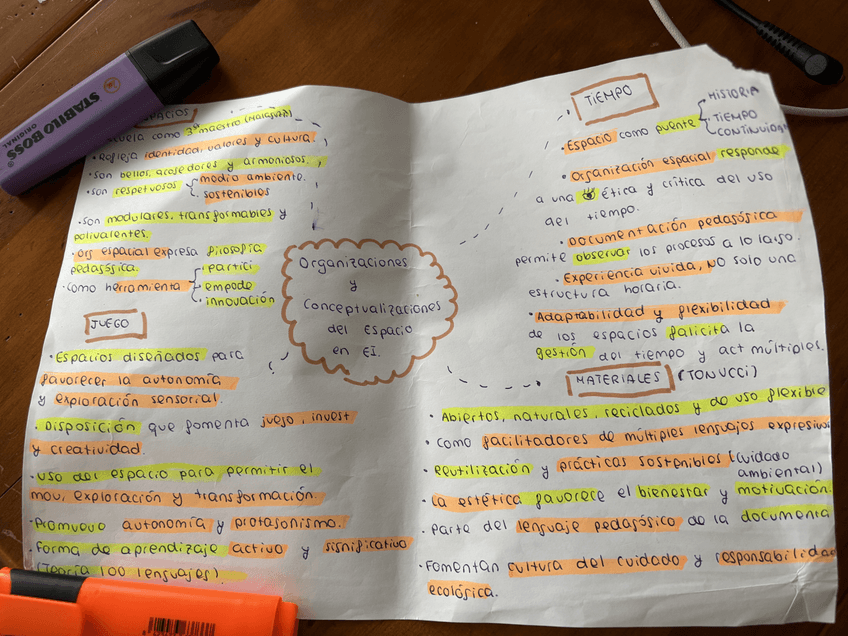 STABILO BOSS
ORIGINAL
ESPACIOS
escuela como 3º maestro (Malaguzzi)
• Refleja identidad, valores y cultura.
• son bellos, acogedores y armoniosos.
• son respetuosos medio ambiente.
sostenibles
• son modulares, transformables y
polivalentes.
• org espacial expresa filosofía
pedagógica.
• como herramienta partici
empode
innovación
JUEGO
• Espacios diseñados para
favorecer la autonomía
y exploración sensorial.
• Disposición que fomenta juego, invest
y creatividad.
• Uso del espacio para permitir el
mov, exploración y transformación.
• Promuevo autonomía y protagonismo.
• Forma de aprendizaje activo y significativo
(Teoría 100 lenguajes).
Organizaciones
y
Conceptualizaciones
del Espacio
en EI.
TIEMPO
• Espacio como puente HISTORIA
TIEMPO
CONTINUIDAD
• Organización espacial responde
a una ética y crítica del uso
del tiempo.
• Documentación pedagógica
permite observar los procesos a lo largo.
• Experiencia vivida, NO solo una
estructura horaria.
• Adaptabilidad y flexibilidad
de los espacios falicita la
gestión del tiempo y act múltiples.
MATERIALES (TONUCCI)
• Abiertos, naturales, reciclados y de uso flexible
• como facilitadores de múltiples lenguajes expresivos
• Reutilización y prácticas sostenibles (cuidado
ambiental)
• La estética favorece el bienestar y motivación.
• Parte del lenguaje pedagógico de la documenta
• Fomentan cultura del cuidado y responsabilidad
ecológica.